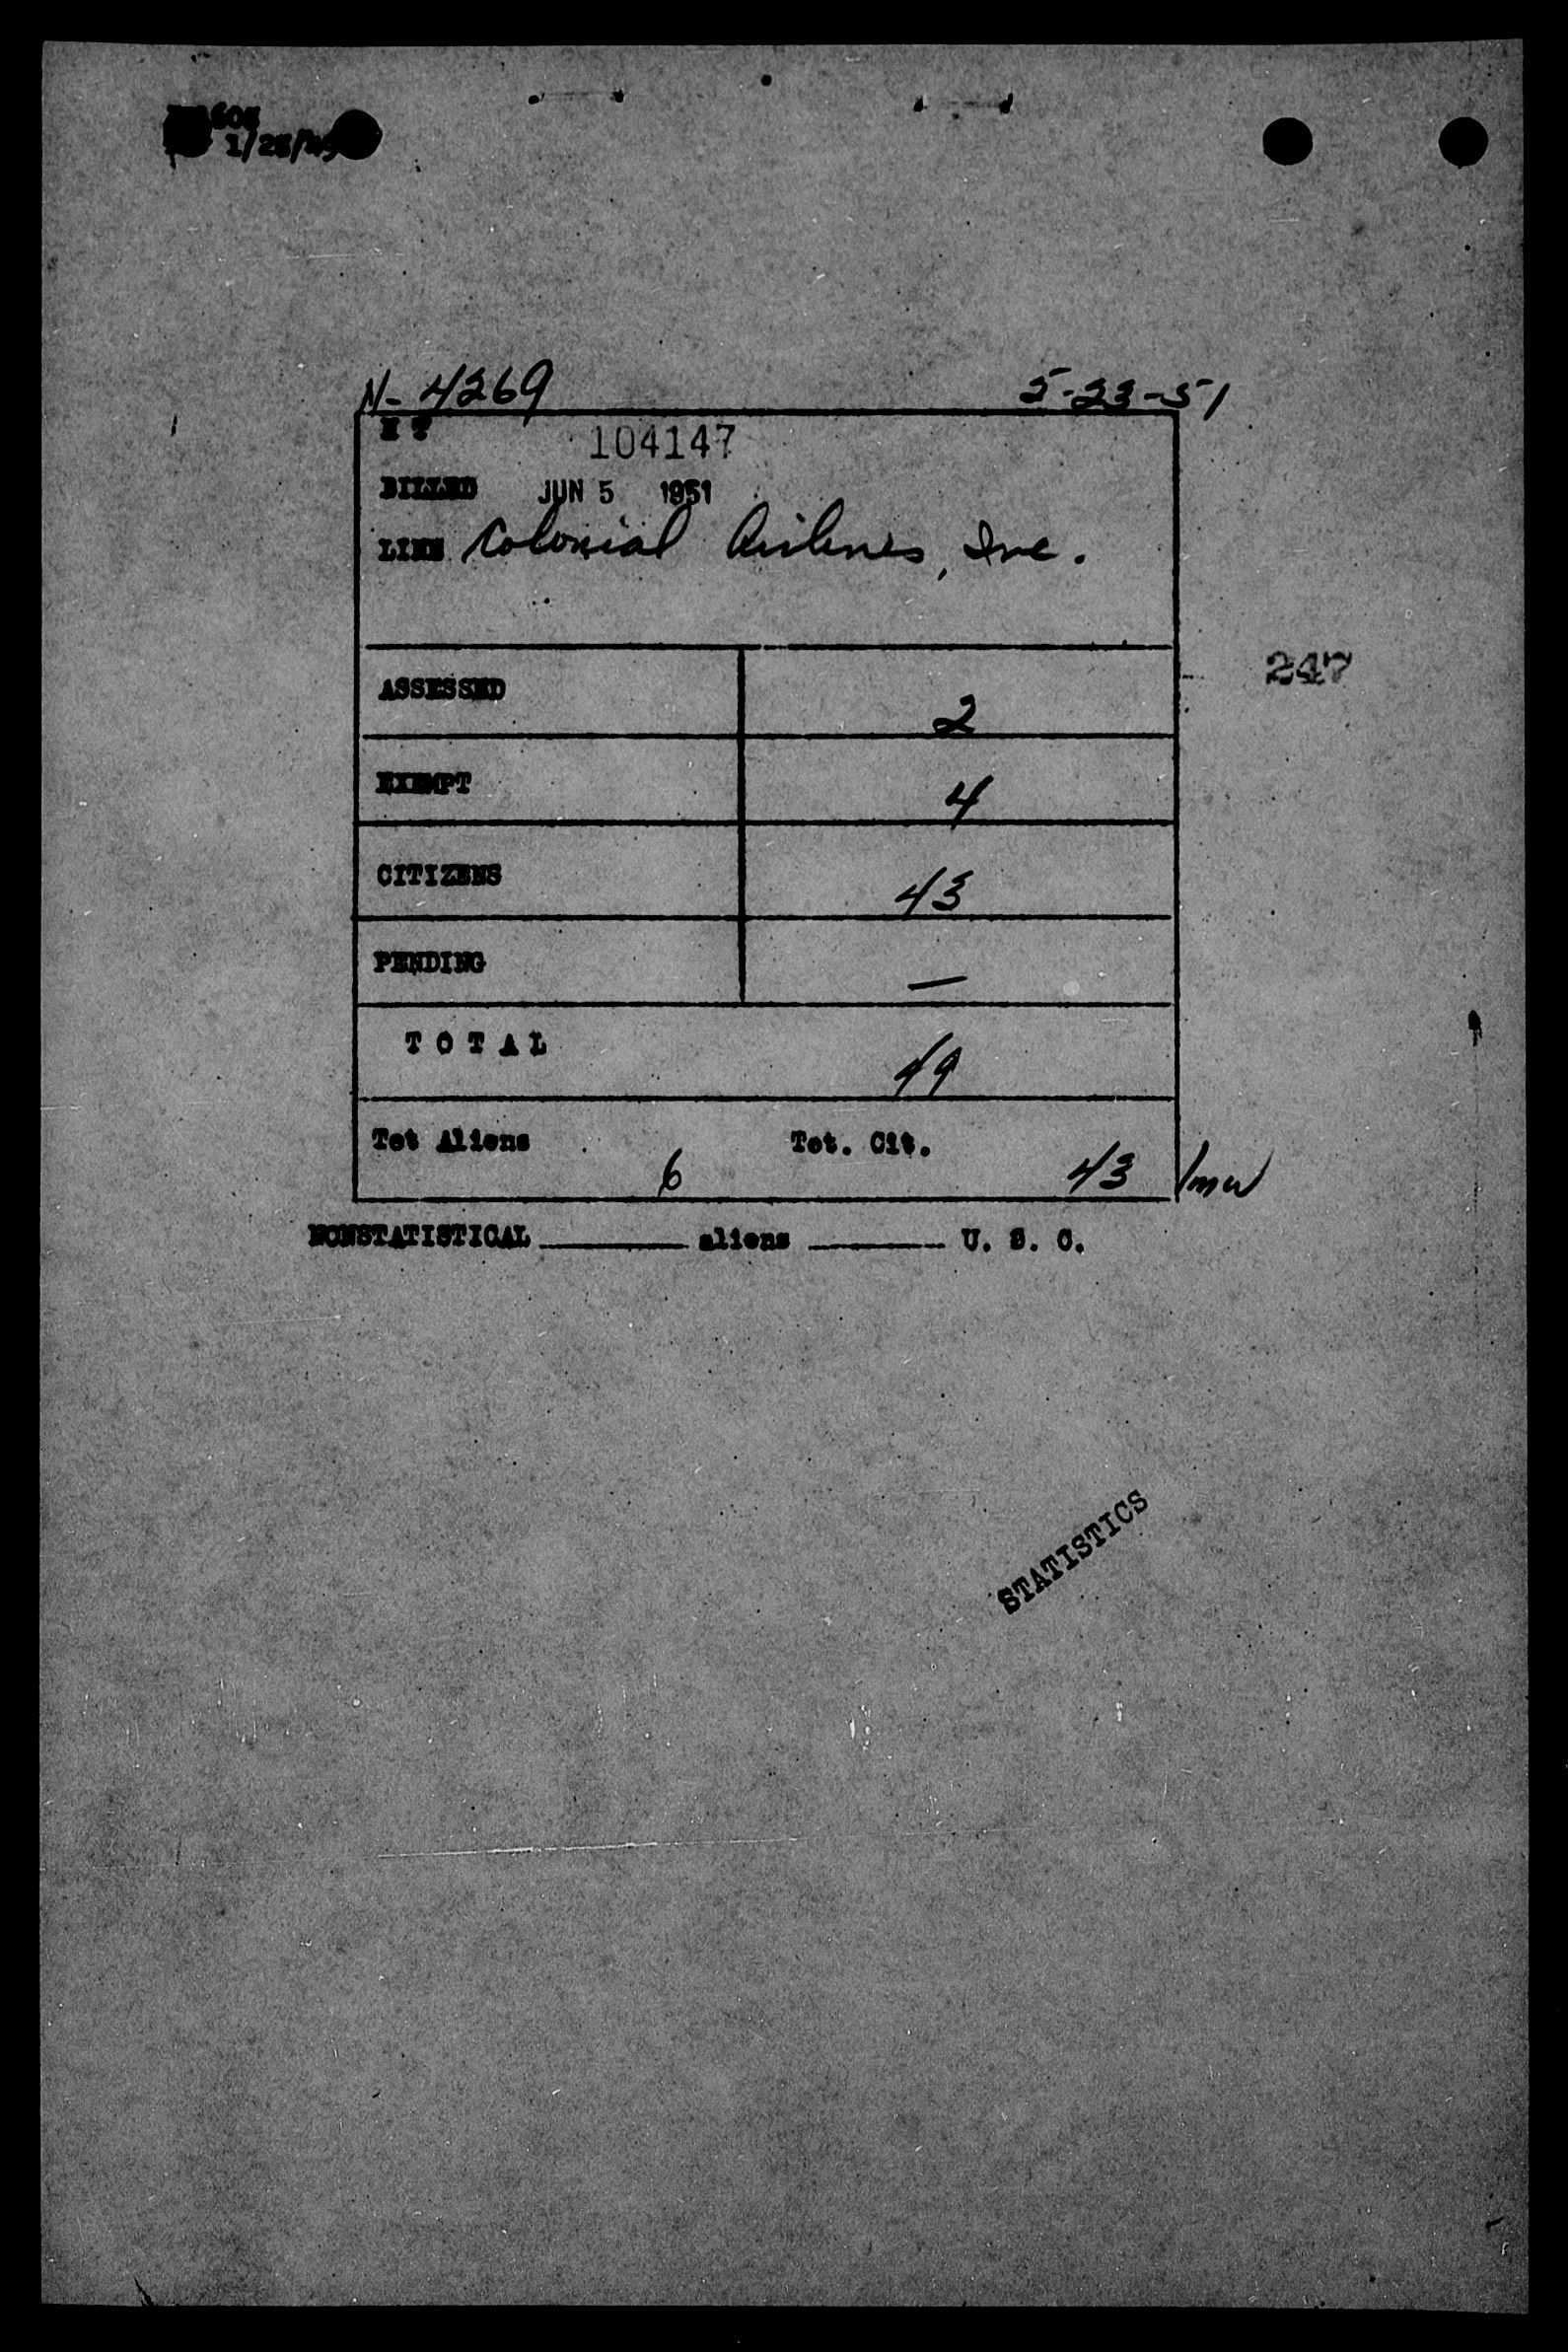 N- 4269 5-23-51
104147
BILLED JUN 5 1951
LINE Colonial Airlines, Inc.
247
ASSESSED 2
EXEMPT 4
CITIZENS 43
PENDING —
TOTAL 49
Tot Aliens 6 Tot. Cit. 43 /mw
NONSTATISTICAL ______ aliens ______ U. S. C.
STATISTICS